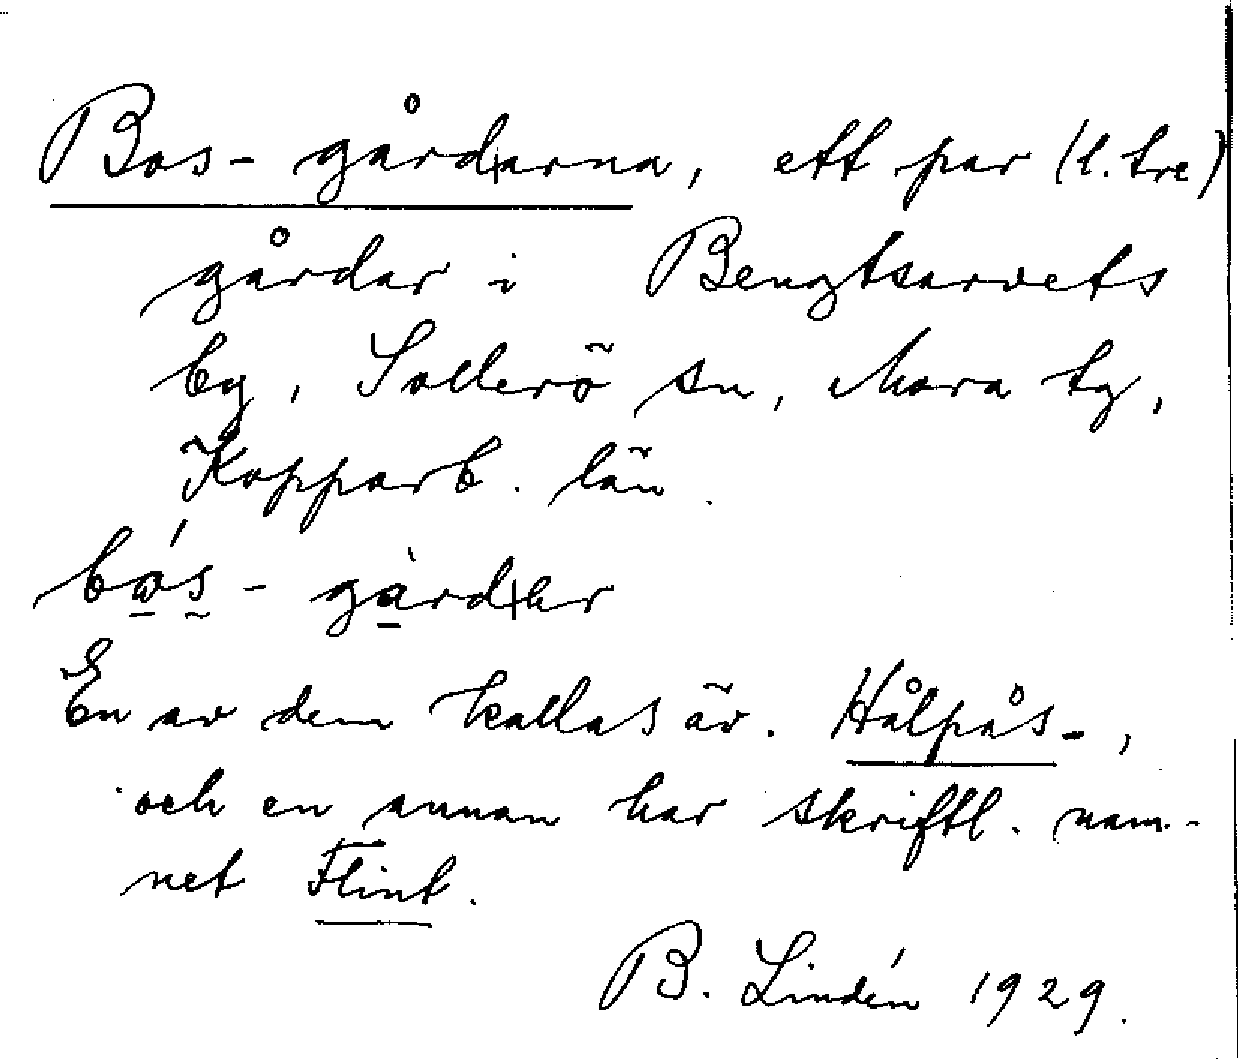 Bos-gårdarna, ett par (l. tre)
gårdar i Bengtsarvets
by, Sollerö sn, Mora tg,
Kopparb. län.
bós-gàrdær
En av dem kallas äv. Hålpås-,
och en annan har skriftl. nam-
net Flint.
B. Lindén 1929.